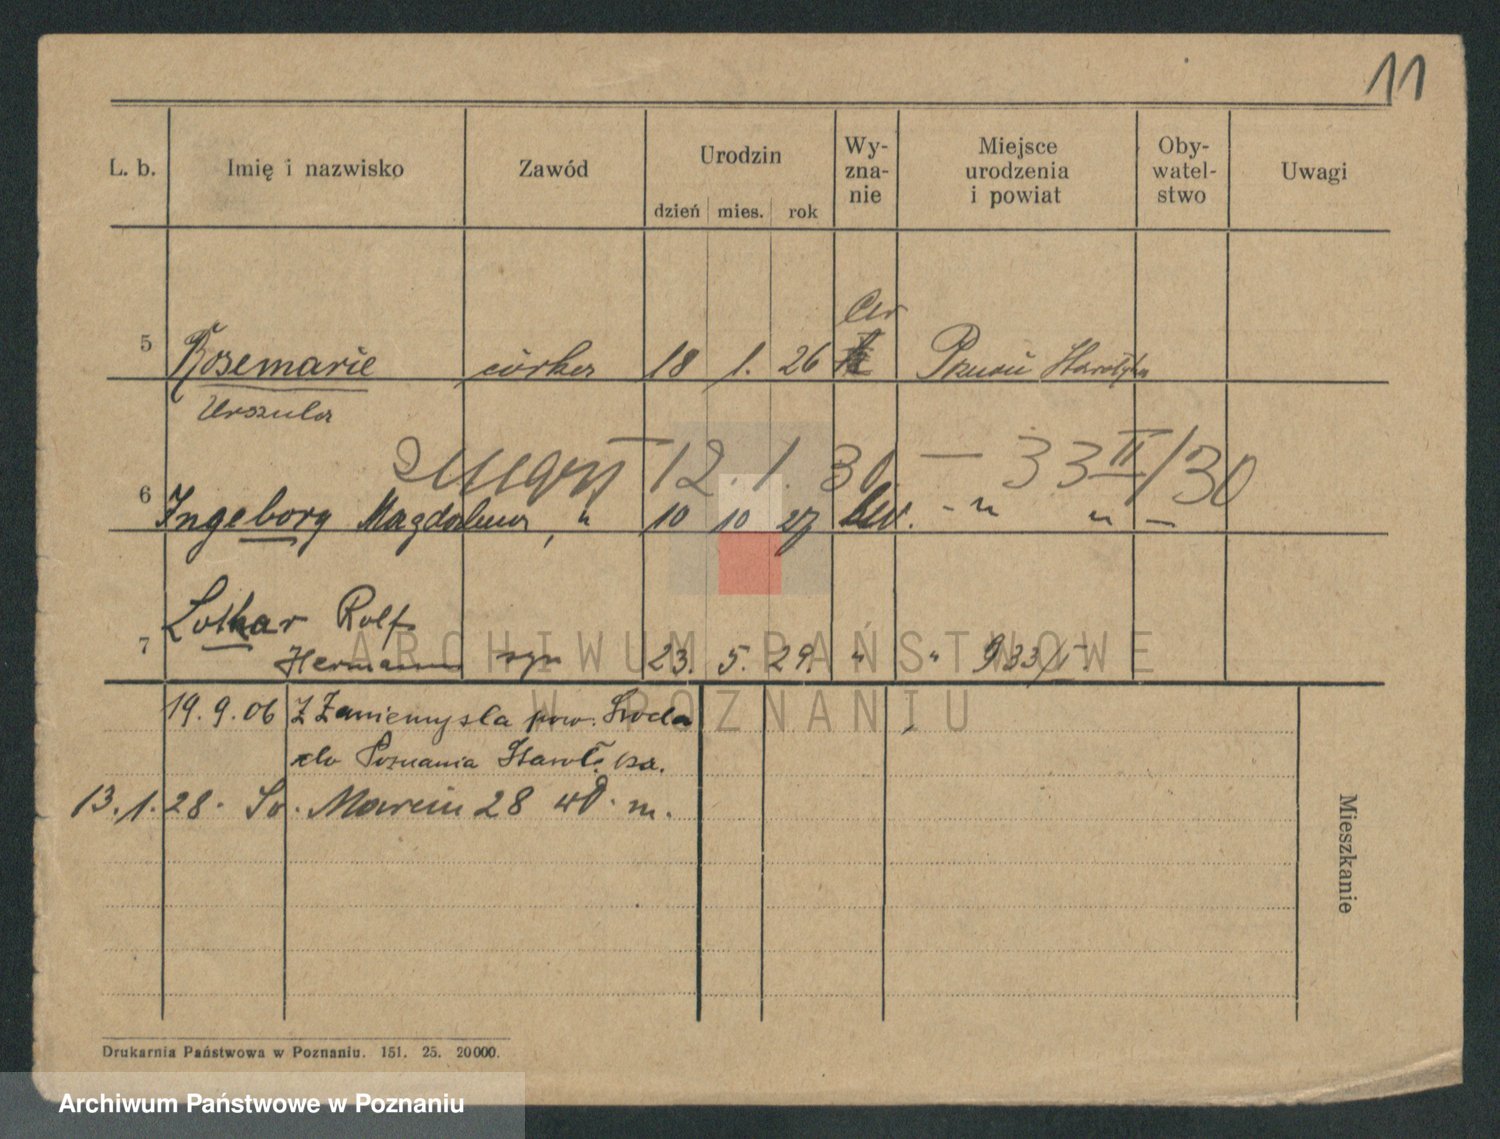 11
L. b. Imię i nazwisko Zawód Urodzin Wy-zna-nie Miejsce urodzenia i powiat Oby-watel-stwo Uwagi
dzień mies. rok
5 Rosemarie córka 18 1. 26 Poznań Starołęka
Urszula
12. 1. 30. — 33 II/30
6 Ingeborg Magdalena, " 10 10 27 ew. - " " —
Lothar Rolf
7 Hermann syn 23. 5. 29. " " 933/I
19. 9. 06 Z Zaniemyśla pow. Środa
do Poznania Starołęka.
13. 1. 28. Św. Marcin 28 m.
Mieszkanie
Drukarnia Państwowa w Poznaniu. 151. 25. 20000.
ARCHIWUM PAŃSTWOWE
W POZNANIU
Archiwum Państwowe w Poznaniu